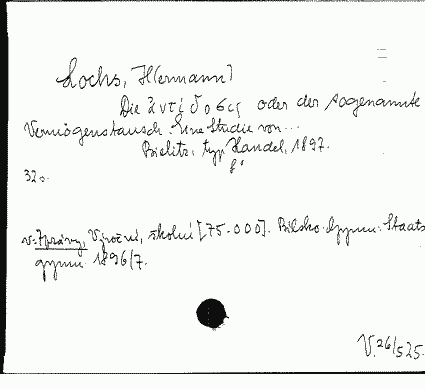 Lochs, H[ermann]
Die ἀντίδοσις oder der sogenannte
Vermögenstausch. Eine Studie von...
Bielitz, typ Handel, 1897.
8°
32 s.
v. Zprávy, Výroční, školní [75-000]. Bilsko. Gymn. Staats
gymn. 1896/7.
V.26/525.